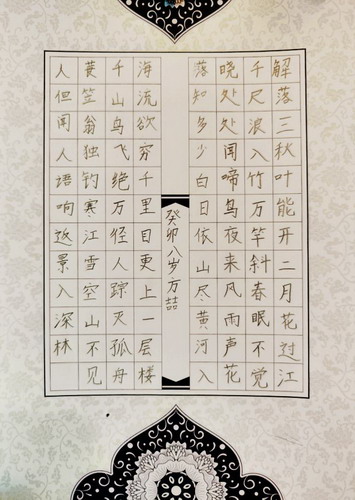 解落三秋叶能开二月花过江
千尺浪入竹万竿斜春眠不觉
晓处处闻啼鸟夜来风雨声花
落知多少白日依山尽黄河入
癸卯八岁方喆
海流欲穷千里目更上一层楼
千山鸟飞绝万径人踪灭孤舟
蓑笠翁独钓寒江雪空山不见
人但闻人语响返景入深林